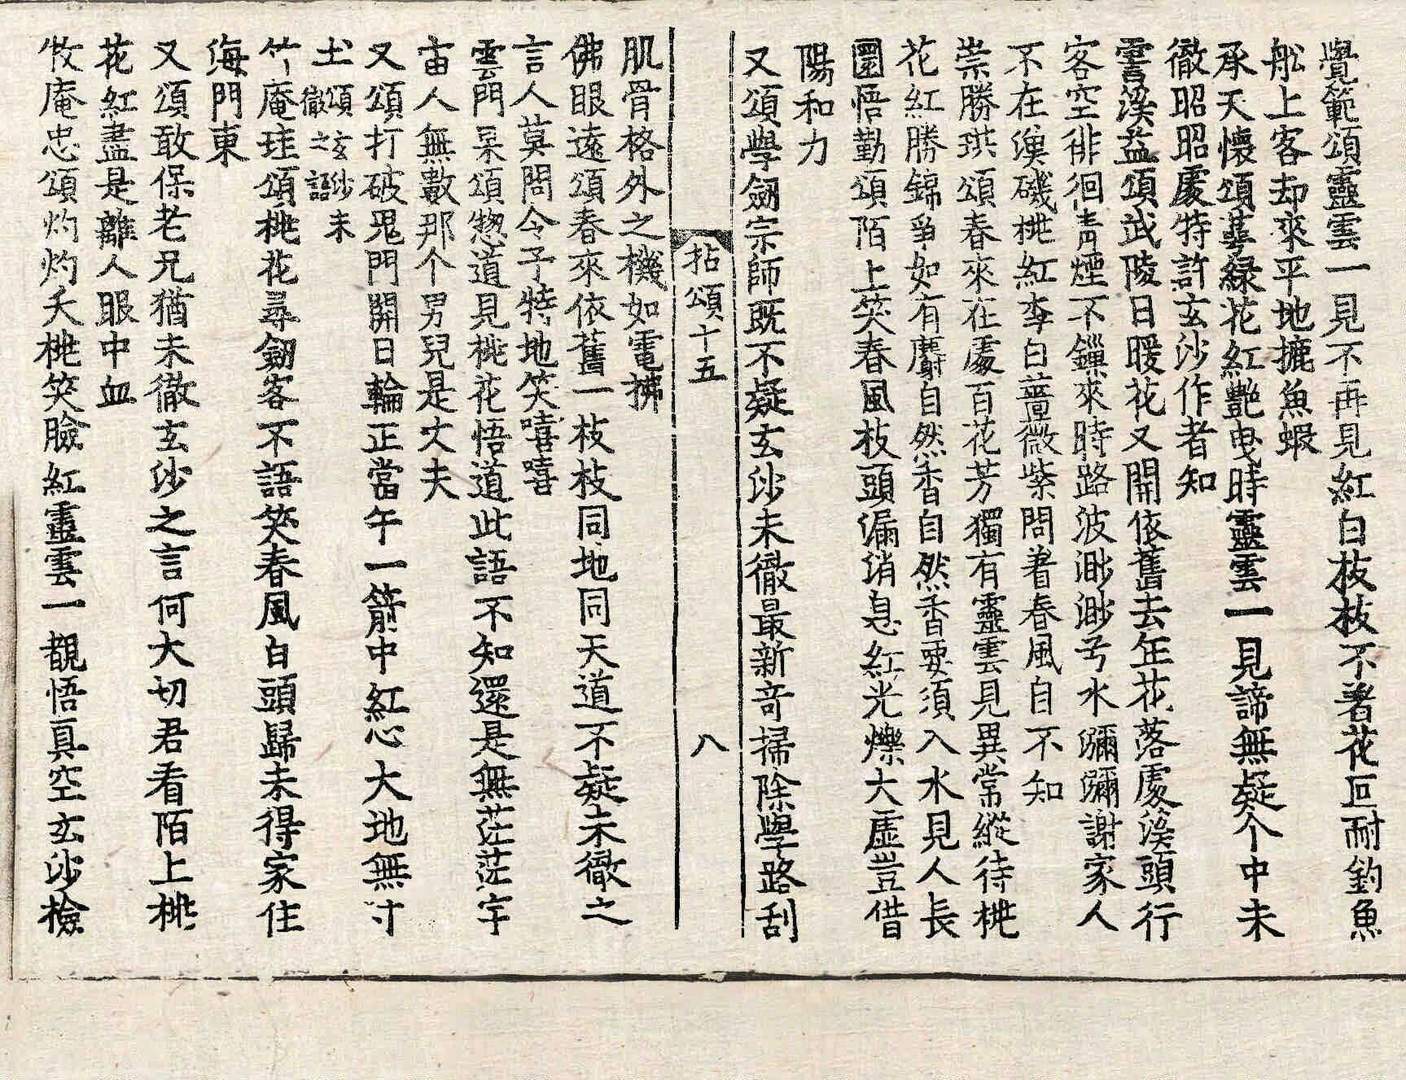 覺範頌靈雲一見不再見紅白枝枝不著花叵耐釣魚
舩上客却來平地摝魚蝦
承天懷頌葉綠花紅艶曳時靈雲一見諦無疑个中未
徹昭昭處特許玄沙作者知
雲溪益頌武陵日暖花又開依舊去年花落處溪頭行
客空徘徊青煙不鏁來時路波渺渺兮水瀰瀰謝家人
不在漁磯桃紅李白薔薇紫問着春風自不知
崇勝珙頌春來在處百花芳獨有靈雲見異常縱待桃
花紅勝錦爭如有麝自然香自然香要須入水見人長
圜悟勤頌陌上笑春風枝頭漏消息紅光爍大虛豈借
陽和力
又頌學劒宗師既不疑玄沙未徹最新竒掃除學路刮
拈頌十五 八
肌骨格外之機如電拂
佛眼遠頌春來依舊一枝枝同地同天道不疑未徹之
言人莫問令子特地笑嘻嘻
雲門杲頌惣道見桃花悟道此語不知還是無茫茫宇
宙人無數那个男兒是丈夫
又頌打破鬼門關日輪正當午一箭中紅心大地無寸
土 頌玄沙未徹之語
竹庵珪頌桃花尋劒客不語笑春風白頭歸未得家住
海門東
又頌敢保老兄猶未徹玄沙之言何大切君看陌上桃
花紅盡是離人眼中血
牧庵忠頌灼灼夭桃笑臉紅靈雲一覩悟真空玄沙檢